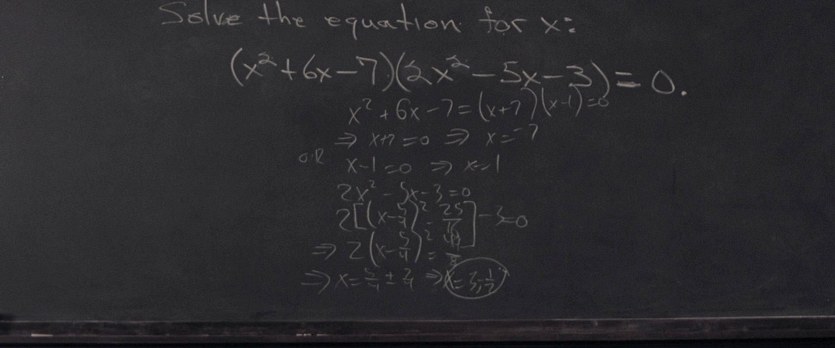 Solve the equation for x:
(x²+6x-7)(2x²-5x-3)=0.
x²+6x-7=(x+7)(x-1)=0
⇒ x+7=0 ⇒ x=-7
OR x-1=0 ⇒ x=1
2x²-5x-3=0
2[(x-5/4)²-25/16]-3=0
⇒ 2(x-5/4)²=49/8
⇒ x=5/4±7/4 ⇒